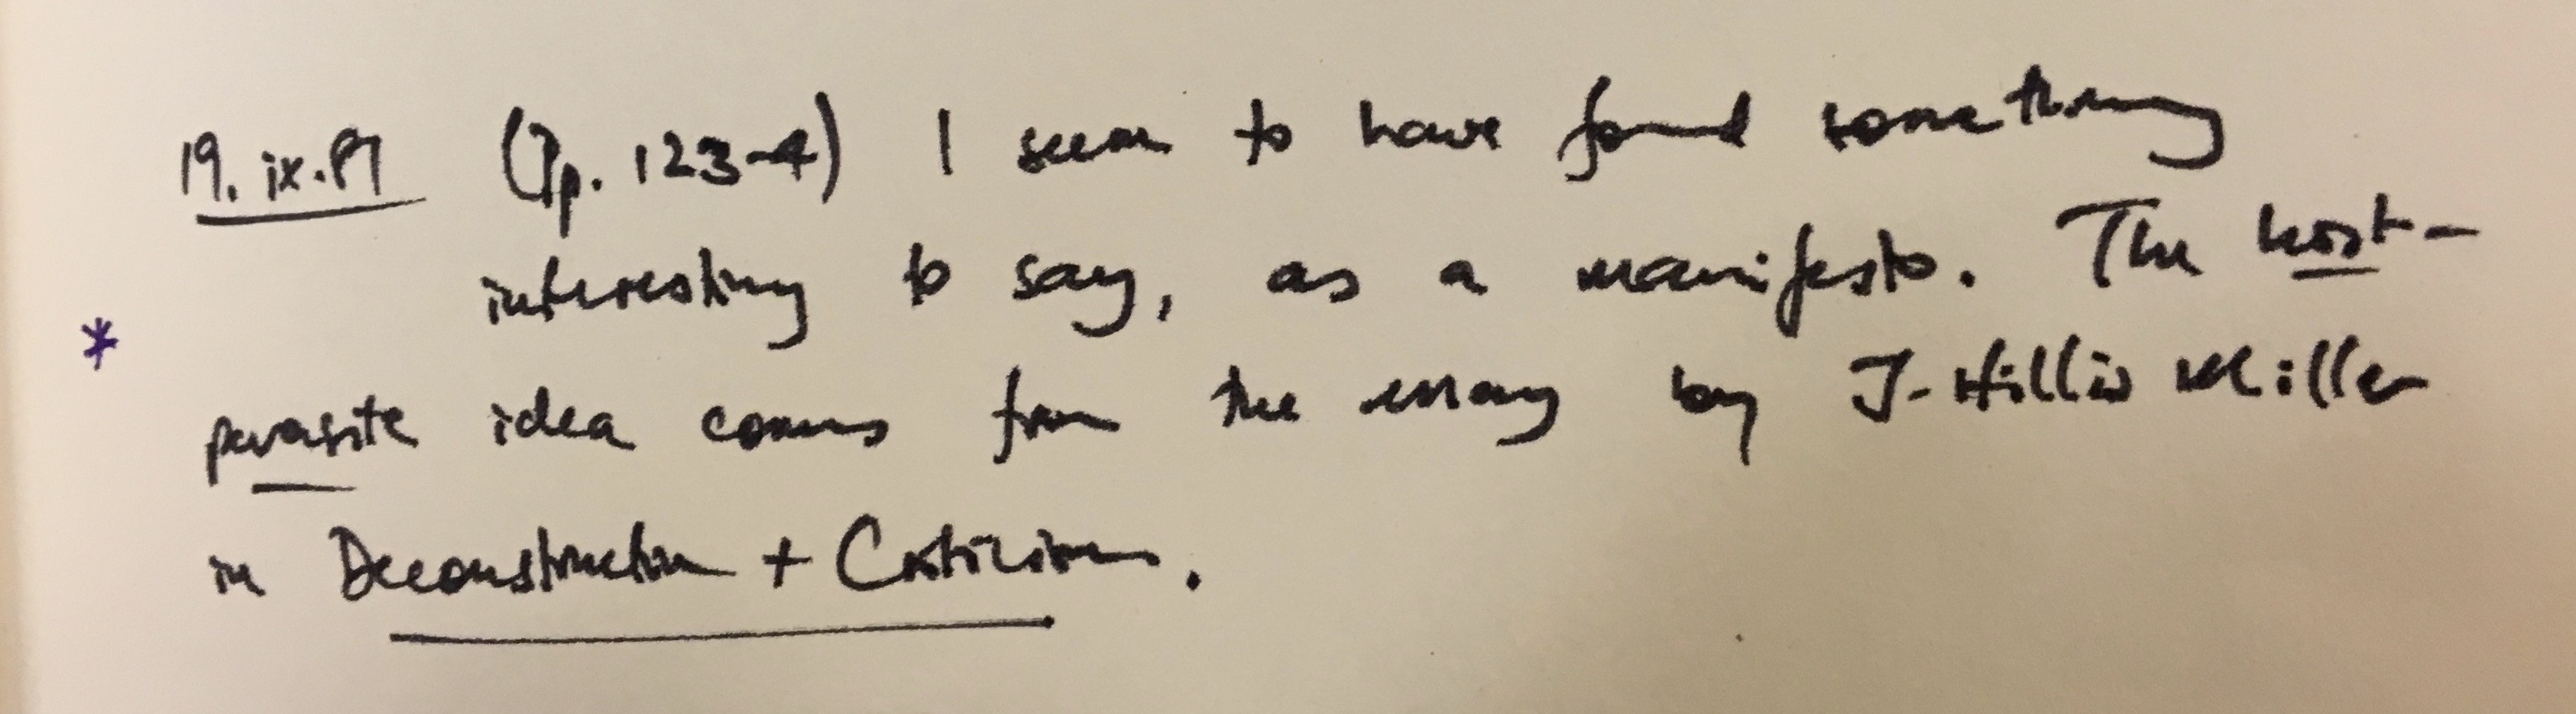 19. ix. 89 (Pp. 123-4) I seem to have found something
interesting to say, as a manifesto. The host-
*
parasite idea comes from the essay by J. Hillis Miller
in Deconstruction + Criticism.